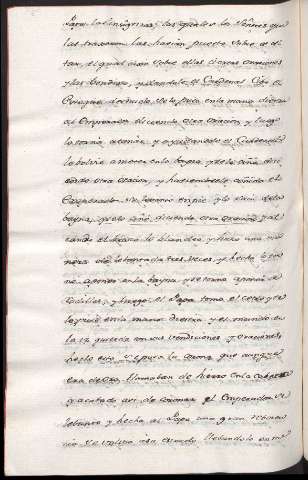 Papa las insignias, las quales los señores que
las traxeron las havian puesto sobre el al
tar, el qual dixo sobre ellas ciertas oraciones
y las bendixo, quitandole el Cardenal Cibo el
estoque desnudo se le puso en la mano diestra
al Emperador diciendo otra oracion, y luego
lo torno a tomar, y el Cardenal
le bolvio a meter en la bayna, y se le ciño dici
endo otra oracion, y haviendole ceñido el
Emperador se levanto en pie y lo saco de la
bayna, diciendo otra oracion y al
zando el brazo le blandeo, y hizo una ma
nera de tres veces, y hecho lo tor
no a poner en la bayna y se torno a poner de
rodillas, y luego el Papa toma el cetro y se
le puso en la mano derecha, y el mundo en
la izquierda con sus bendiciones y oraciones,
hecho esto le puso la corona que aunque
era de oro llamaban de hierro en la cabeza
y acabado asi de coronar el Emperador se
lebanto y hecha al Papa una gran reveren
cia se volvio a su asiento llevandolo en me